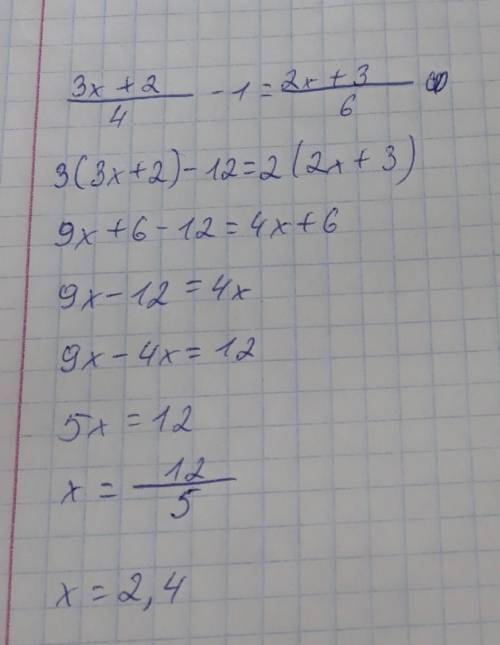 (3x + 2)/4 - 1 = (2x + 3)/6
3(3x+2)-12=2(2x+3)
9x+6-12=4x+6
9x-12=4x
9x-4x=12
5x=12
x = 12/5
x=2,4